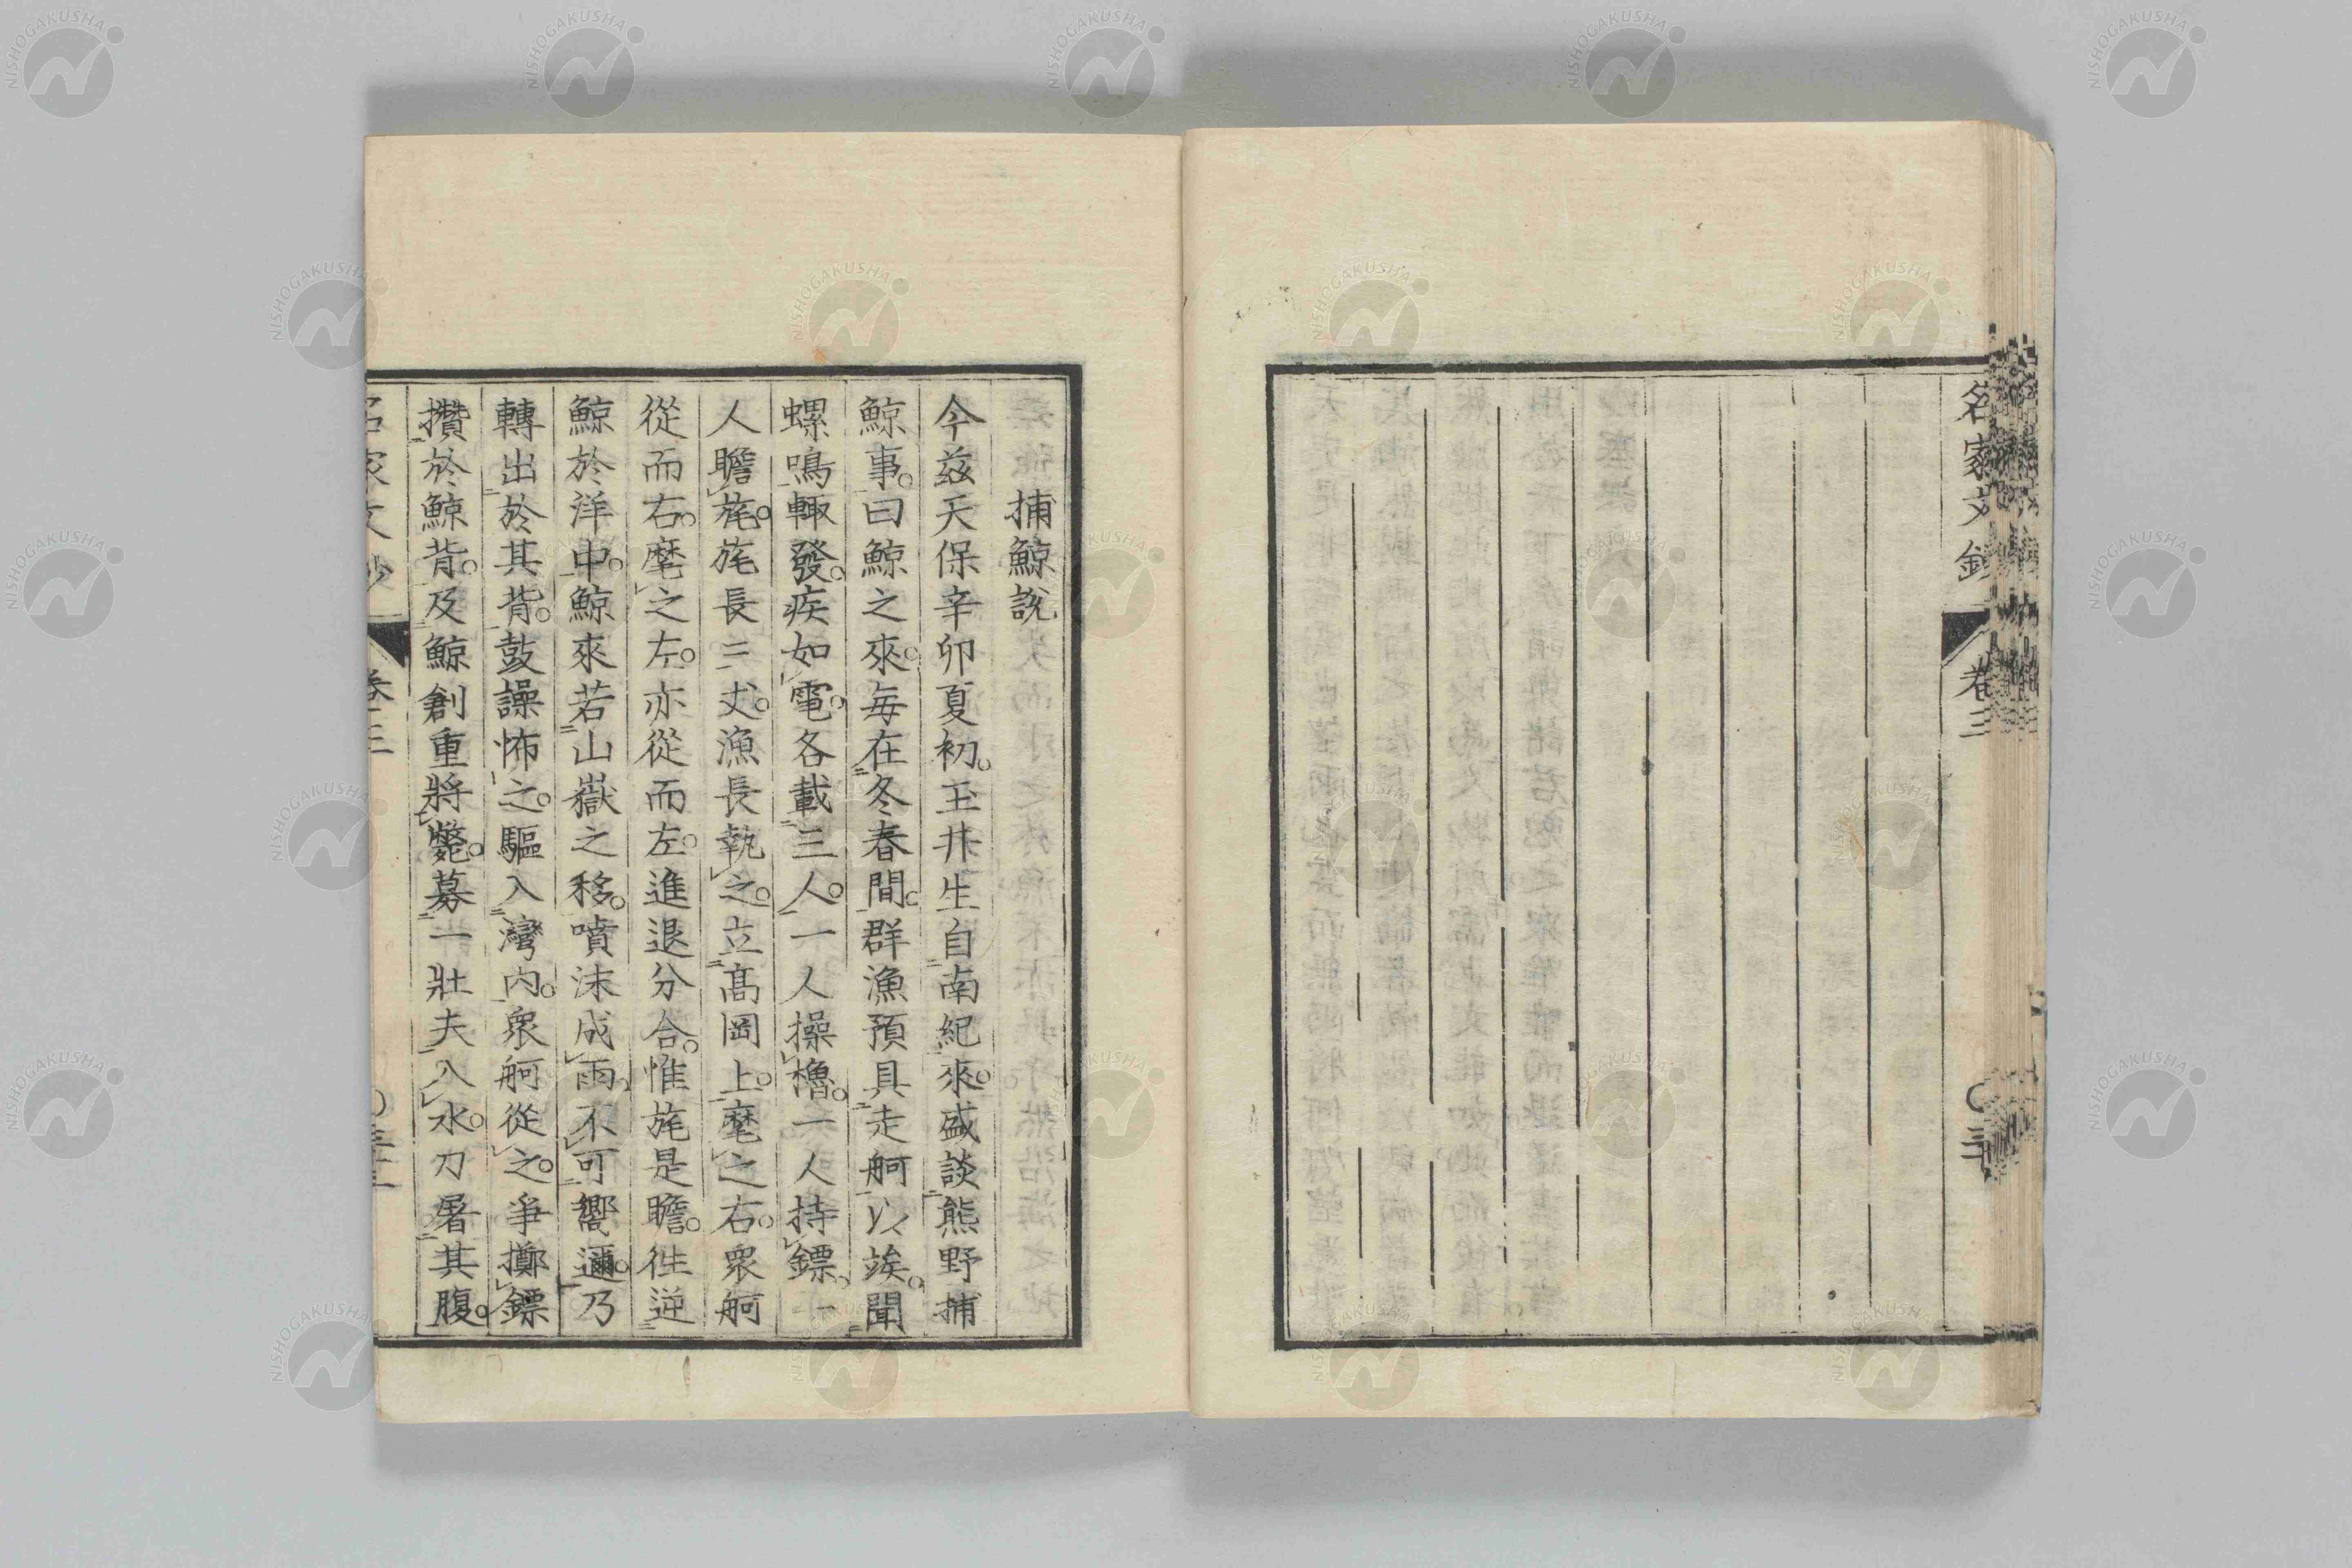 名家文鈔
卷三
捕鯨說
今茲天保辛卯夏初。玉井生自南紀來。盛談熊野捕
鯨事。曰鯨之來。每在冬春間。群漁預具走舸以竢。聞
螺鳴輙發。疾如電。各載三人。一人操櫓。一人持鏢。一
人瞻旄。旄長三丈。漁長執之。立高岡上。麾之右。衆舸
從而右。麾之左。亦從而左。進退分合。惟旄是瞻。徃逆
鯨於洋中。鯨來若山嶽之移。噴沫成雨。不可嚮邇。乃
轉出於其背。鼓譟怖之。驅入灣内。衆舸從之。爭擲鏢
攢於鯨背。及鯨創重將斃。募一壯夫入水。刀屠其腹。
名家文鈔
卷三
NISHOGAKUSHA